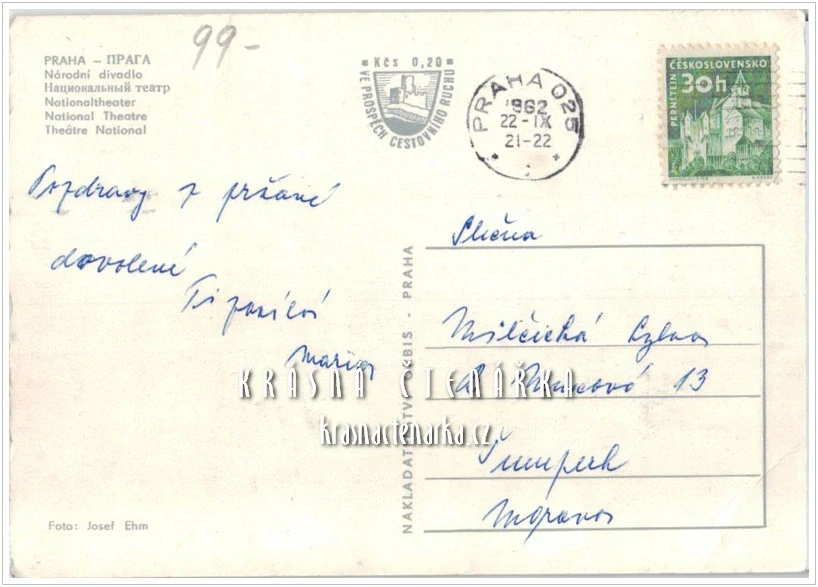 99-
PRAHA – ПРАГА
Národní divadlo
Национальный театр
Nationaltheater
National Theatre
Theâtre National
Kčs 0,20
VE PROSPĚCH CESTOVNÍHO RUCHU
PRAHA 025
1962
22-IX
21-22
ČESKOSLOVENSKO
30h
PERNŠTEJN
Pozdravy z pržané
dovolené
Ti posílá
Maria
Slečna
Milčická
13
Šumperk
Morava
NAKLADATELSTVÍ ORBIS - PRAHA
KRÁSNÁ ČTENÁŘKA
krasnactenarka.cz
Foto: Josef Ehm